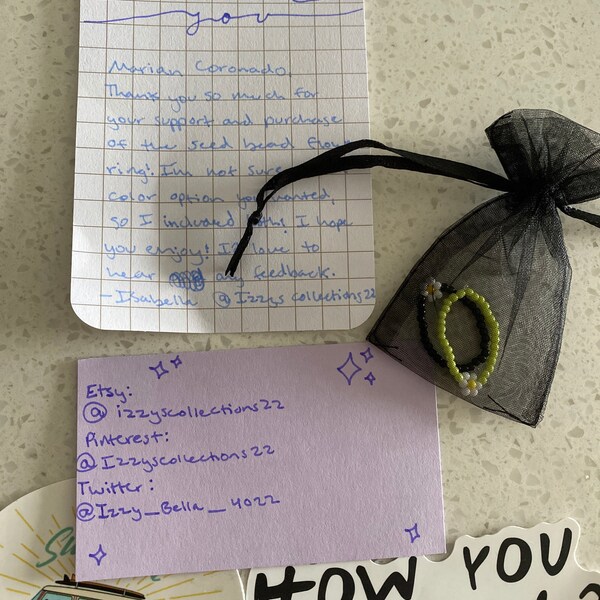 you
Marian Coronado,
Thank you so much for
your support and purchase
of the seed bead
ring! I'm not sure
color option you wanted,
so I included I hope
you enjoy! I'd love to
hear any feedback.
- Isabella @Izzyscollections22
Etsy:
@izzyscollections22
Pinterest:
@Izzyscollections22
Twitter:
@Izzy_Bella_4022
HOW YOU